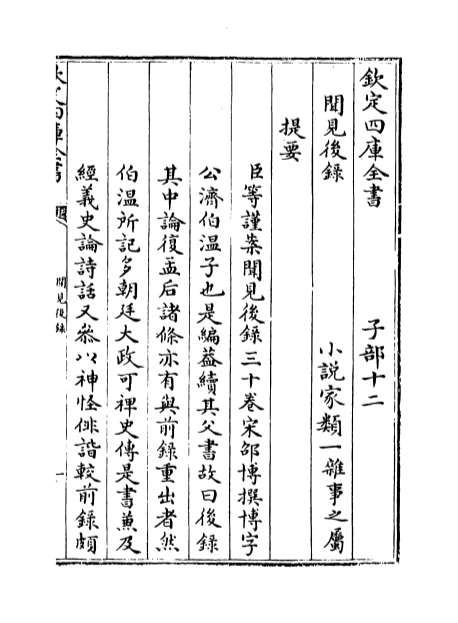 欽定四庫全書　子部十二
聞見後錄　小說家類一雜事之屬
提要
臣等謹案聞見後錄三十卷宋邵博撰博字
公濟伯溫子也是編葢續其父書故曰後錄
其中論復孟后諸條亦有與前錄重出者然
伯溫所記多朝廷大政可裨史傳是書兼及
經義史論詩話又叅以神怪俳諧較前錄頗
欽定四庫全書
聞見後錄
一